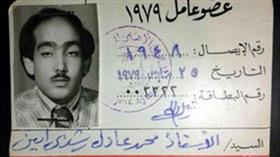 عضو عامل ١٩٧٩
رقم الإيصال : ١٩٤٨
التاريخ ٢٥ ١٩٧٩
رقم البطاقة : ٠٠٢٢٢٢
السيد / الأستاذ محمد عادل رشدى أمين